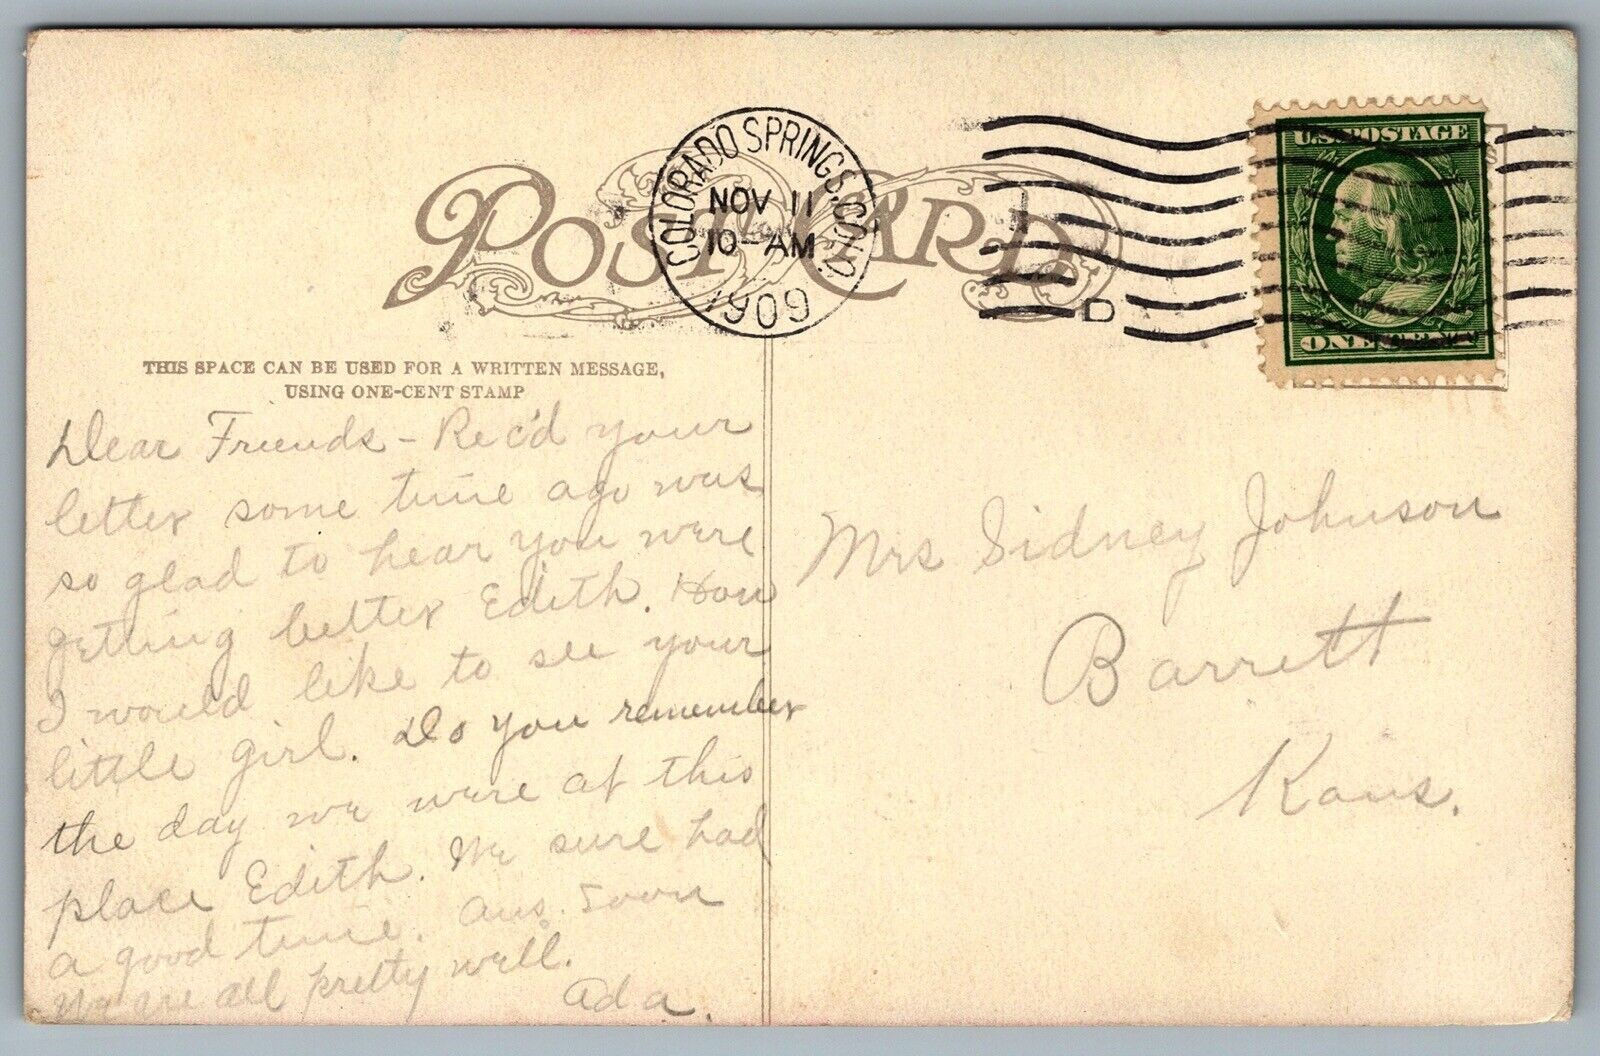 POST CARD
COLORADO SPRINGS, COLO.
NOV 11
10-AM
1909
D
U.S. POSTAGE
ONE CENT
THIS SPACE CAN BE USED FOR A WRITTEN MESSAGE,
USING ONE-CENT STAMP
Dear Friends - Rec'd your
letter some time ago was
so glad to hear you were
getting better Edith. How
I would like to see your
little girl. Do you remember
the day we were at this
place Edith. We sure had
a good time. Ans. Soon
We are all pretty well.
Ada.
Mrs Sidney Johnson
Barrett
Kans.